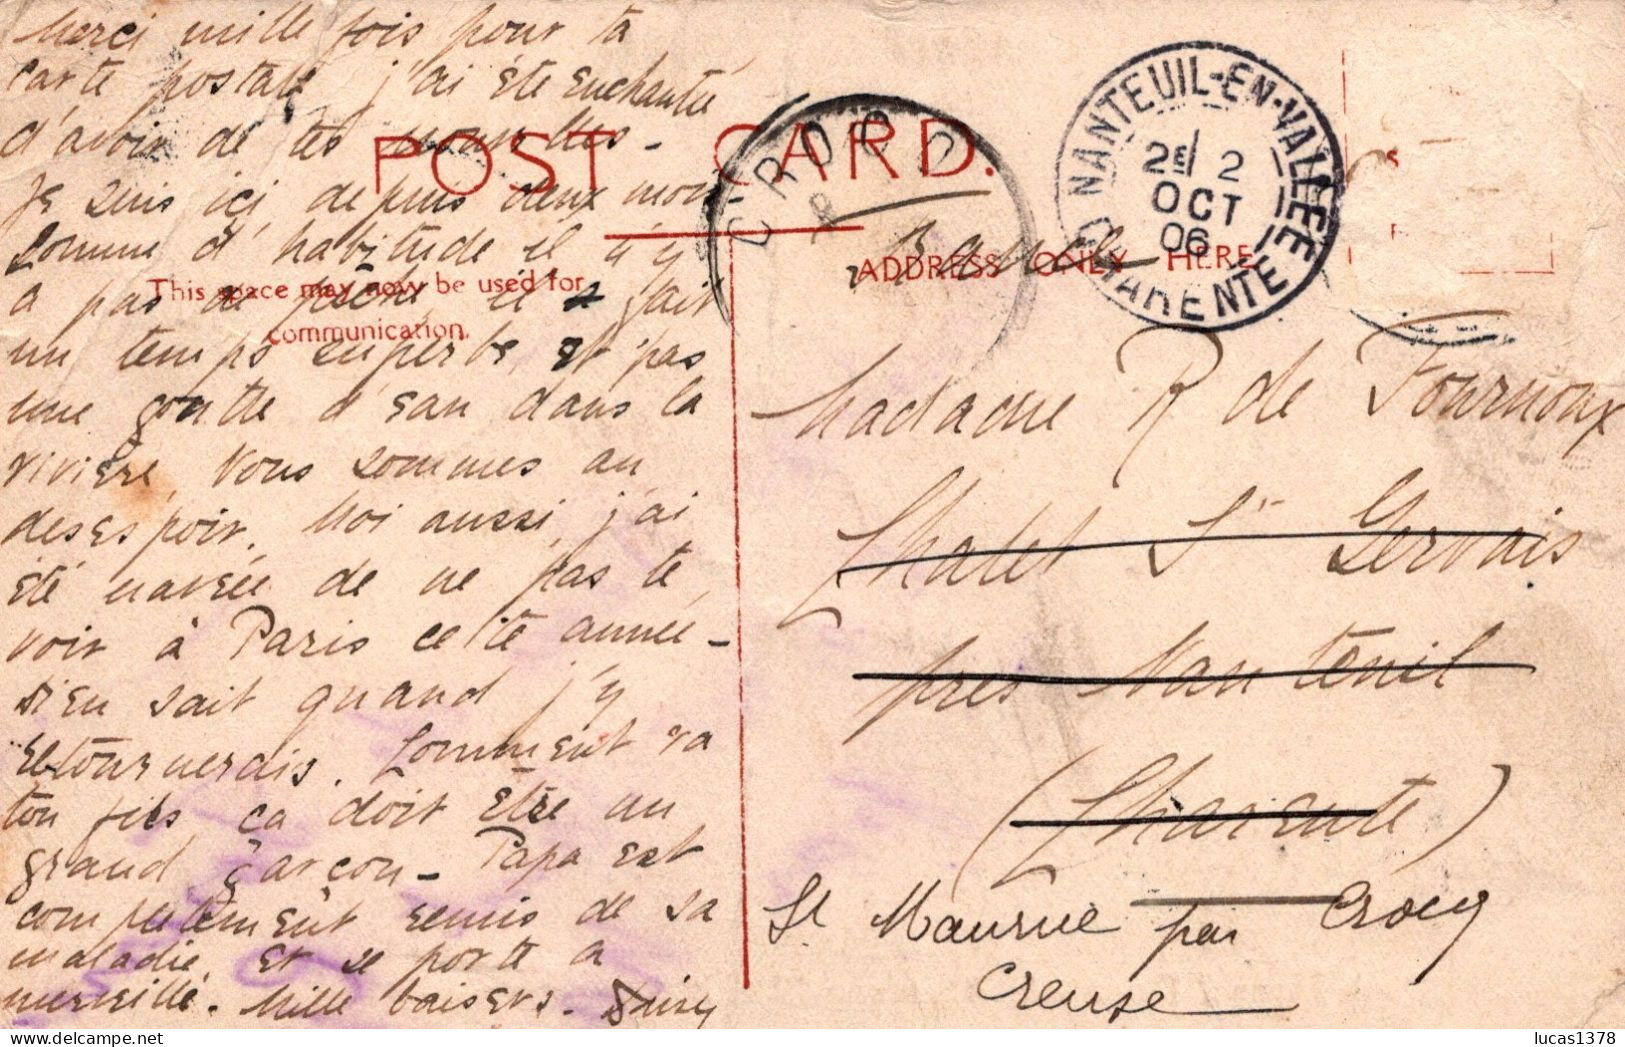 Merci mille fois pour ta
carte postale j'ai été enchantée
d'avoir de tes nouvelles -
Je suis ici, depuis deux mois
Comme d'habitude il n'y
a pas de pêche, il fait
un temps superbe, et pas
une goutte d'eau dans la
rivière, Nous sommes au
desespoir. Moi aussi, j'ai
été navrée de ne pas te
voir à Paris cette année -
Dieu sait quand j'y
retournerais. Comment va
ton fils ça doit être un
grand garçon - Papa est
completement remis de sa
maladie, et se porte a
merveille. Mille baisers.
POST CARD.
This space may now be used for
communication.
ADDRESS ONLY HERE
CROCQ
NANTEUIL-EN-VALLEE
2E 2
OCT
06
CHARENTE
Madame R de Fournoux
Chalet St Gervais
près Nanteuil
(Charente)
St Maurice par Crocq
Creuse
lucas1378